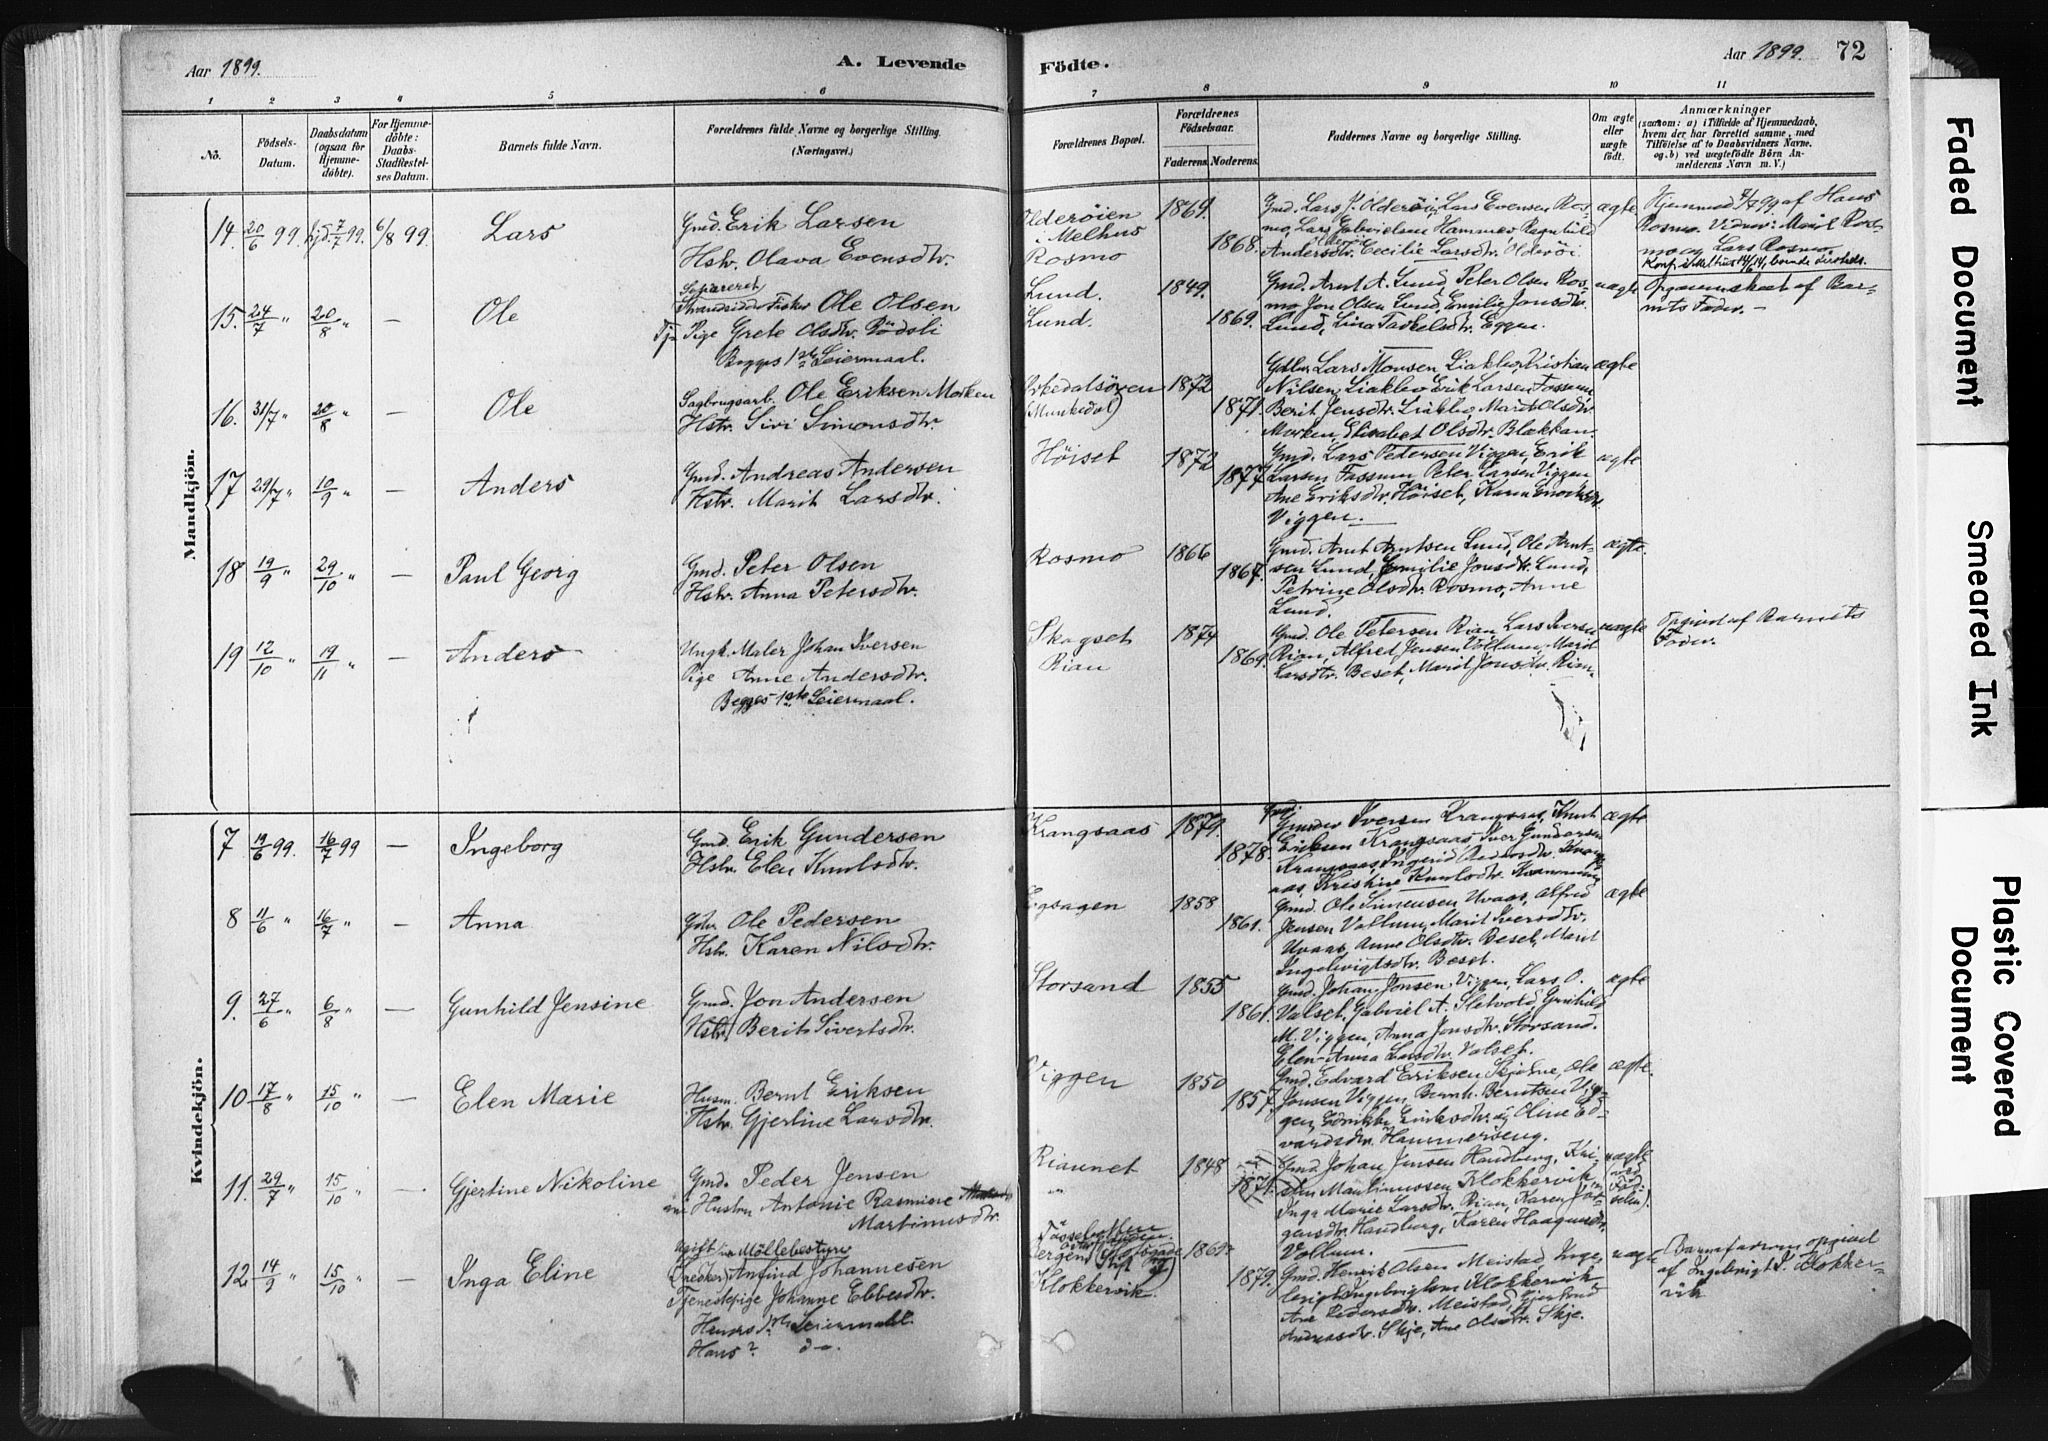 Aar 1899.
A. Levende
Födte.
Aar 1899.
72
1 2 3 4 5 6 7 8 9 10 11
No.
Födsels-
Datum.
Daabsdatum
(ogsaa for
Hjemme-
döbte).
For Hjemme-
döbte:
Daabs-
Stadfæstel-
ses Datum.
Barnets fulde Navn.
Forældrenes fulde Navne og borgerlige Stilling.
(Næringsvei.)
Forældrenes Bopæl.
Forældrenes
Födselsaar.
Faderens. Moderens.
Faddernes Navne og borgerlige Stilling.
Om ægte
eller
uægte
födt.
Anmærkninger
(saasom: a) i Tilfælde af Hjemmedaab,
hvem der har forrettet samme, med
Tilföielse af to Daabsvidners Navne.
og b) ved uægtefödte Börn An-
melderens Navn m. V.)
Mandkjön.
14. 20/6 99 hjd. 7/7 99. 6/8 99. Lars
Gmd. Erik Larsen
Hstr. Olava Evensdtr.
Olderöien
i Melhus
Rosmo
1869.
1868.
Gmd. Lars J. Olderöi, Lars Evensen Ros-
mo, Lars Gabrielsen Hammer, Ragnhild
Andersdtr. Cecilie Larsdtr. Olderöi
ægte
Hjemmed. 7/7 99 af Hans
Rosmo. Vidner: Marit Ros-
mo og Lars Rosmo.
15. 24/7 " 20/8 " — Ole
Separeret
Strandsidder Fisker Ole Olsen
Tj. Pige Grete Olsdtr. Rödsli
Begges 1ste Leiermaal.
Lund.
Lund.
1849.
1869.
Gmd. Arnt A. Lund, Peter Olsen Ros-
mo, Jon Olsen Lund, Emilie Jonsdtr.
Lund, Lina Eggen.
uægte
af Bar-
nets Fader. —
16. 31/7 " 20/8 " — Ole
Sagbrugsarb. Ole Eriksen Morken
Hstr. Sivi Simonsdtr.
Orkedalsören
(Munkedal)
1872
1871.
Lars Monsen Liakbo, Kristian
Nilsen Liakbo, Erik Larsen Fossum,
Berit Jensdtr. Liakbo, Marit Olsdtr.
Morken, Elisabet Olsdtr. Blakkan.
ægte
17 29/7 " 10/9 " — Anders
Gmd. Andreas Andersen
Hstr. Marit Larsdtr.
Höiset
1872
1877
Gmd. Lars Pedersen Viggen, Erik
Larsen Fossum, Peter Larsen Viggen,
Ane Eriksdtr. Höiset, Karen
Viggen.
ægte
18 19/9 " 29/10 " — Paul Georg
Gmd. Peter Olsen
Hstr. Anna Petersdtr.
Rosmo
1866
1867.
Gmd. Arnt Arntsen Lund, Ole Arnt-
sen Lund, Emilie Jonsdtr. Lund,
Petrine Olsdtr. Rosmo, Anne
Lund.
ægte
19 12/10 " 19/11 " — Anders
Ungk. Maler Johan Iversen
Pige Anne Andersdtr.
Begges 1ste Leiermaal.
Skagset
Rian
1874
1869.
Gmd. Ole Petersen Rian, Lars Iversen
Rian, Alfred Jensen Vollum, Marit
Larsdtr. Beset, Marit Jonsdtr. Rian
uægte
Opgivet af Barnets
Fader.
Kvindekjön.
7 19/6 99. 16/7 99 — Ingeborg
Gmd. Erik Gundersen
Hstr. Elen Knutsdtr.
Krangsaas
1879.
1878.
Gmd.
Gunder Iversen Krangsaas, Knut
Eriksen Krangsaas, Iver Gundersen
Krangsaas, Ingerid Andersdtr. Krangs-
aas, Kristine Knutsdtr.
ægte
8 11/6 " 16/7 " — Anna
Gbr. Ole Pedersen
Hstr. Karen Nilsdtr.
1858
1861.
Gmd. Ole Simensen Uvaas, Alfred
Jensen Vollum, Marit Iversdtr.
Uvaas, Anne Olsdtr. Beset, Marit
Ingebrigtsdtr. Beset.
ægte
9. 27/6 " 6/8 " — Gunhild Jensine
Gmd. Jon Andersen
Hstr. Berit Sivertsdtr.
Storsand
1855
1861.
Gmd. Johan Jonsen Viggen, Lars O.
Valset, Gabriel A. Sletvold, Gunhild
M. Viggen, Anna Jonsdtr. Storsand.
Elen-Anna Larsdtr. Valset.
ægte
10 17/8 " 15/10 " — Elen Marie
Husm. Bernt Eriksen
Hstr. Gjertine Larsdtr.
Viggen
1850
1857
Gmd. Edvard Eriksen Skjörne, Ole
Jonsen Viggen, Bernh. Berntsen Vig-
gen, Eriksdtr. og Oline Ed-
vardsdtr. Hammerseng.
ægte.
11. 29/7 " 15/10 " — Gjertine Nikoline
Gmd. Peder Jensen
Hustru Antonie Rasmine
Martinusdtr.
Riaunet
"
1848
1871.
Gmd. Johan Jensen Haudberg, Kri-
sten Mautinussen Klokkervik,
Inga Marie Larsdtr. Rian, Karen Jör-
gensdtr. Haudberg, Karen Haagensdtr.
Vollum.
12. 14/9 " 15/10 " — Inga Eline
Ugift Möllebestyrer
(Snedker) Anfind Johannesen
Tjenestepige Johanne Ebbesdtr.
Hendes 1ste Leiermaal.
Hans ? do.
Klokkervik.
1869
1879.
Gmd. Henrik Olsen Meistad, Inge-
brigt Ingebrigtsen Klokkervik
Ane Pedersdtr. Meistad, Gjertrud
Andreasdtr. Skje, Ane Olsdtr. Skje.
uægte
Barnefaderen opgivet
af Ingebrigt J. Klokker-
vik
Faded Document
Smeared Ink
Plastic Covered
Document